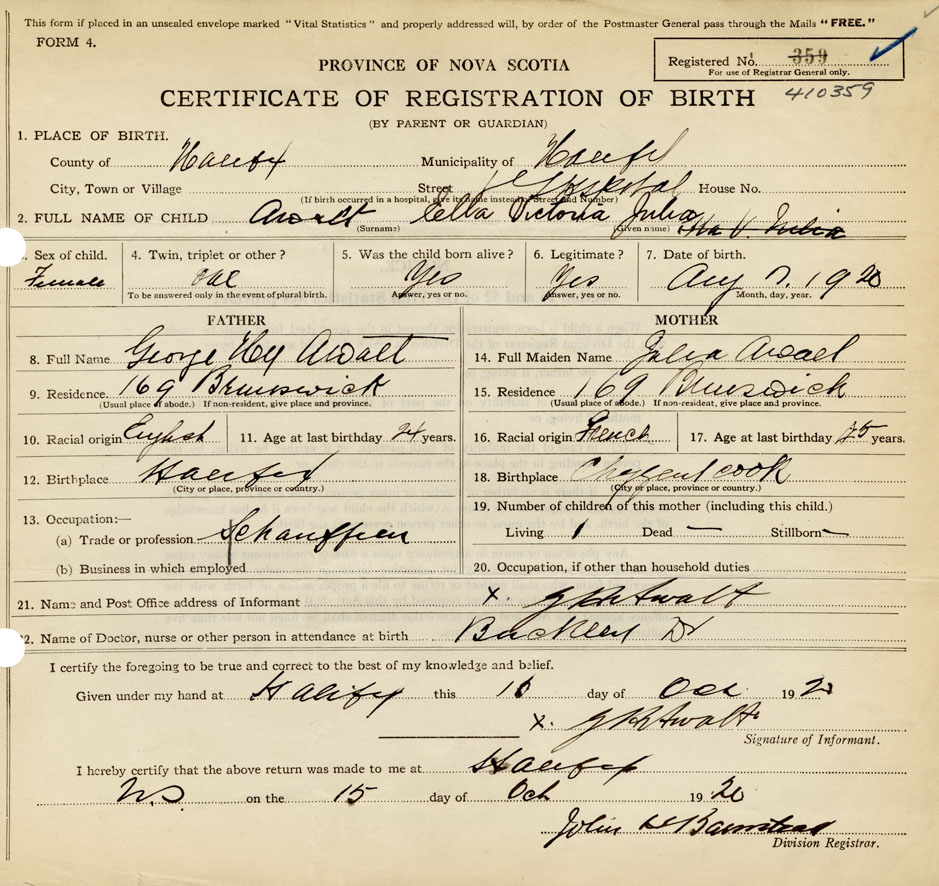 This form if placed in an unsealed envelope marked "Vital Statistics" and properly addressed will, by order of the Postmaster General pass through the Mails "FREE."
FORM 4.
Registered No. 359
For use of Registrar General only.
410359
PROVINCE OF NOVA SCOTIA
CERTIFICATE OF REGISTRATION OF BIRTH
(BY PARENT OR GUARDIAN)
1. PLACE OF BIRTH.
County of Halifax Municipality of Halifax
City, Town or Village Street Hospital House No.
(If birth occurred in a hospital, give its name instead of Street and Number)
2. FULL NAME OF CHILD Awalt Ella Victoria Julia
(Surname) (Given name) V. Julia
Sex of child. 4. Twin, triplet or other? 5. Was the child born alive? 6. Legitimate? 7. Date of birth.
Female One Yes Yes Aug 7. 1920
To be answered only in the event of plural birth. Answer, yes or no. Answer, yes or no. Month, day, year.
FATHER
8. Full Name George Hy Awalt
9. Residence. 169 Brunswick
(Usual place of abode.) If non-resident, give place and province.
10. Racial origin English 11. Age at last birthday 24 years.
12. Birthplace Halifax
(City or place, province or country.)
13. Occupation:—
(a) Trade or profession Schauffeur
(b) Business in which employed
MOTHER
14. Full Maiden Name Julia
15. Residence 169 Brunswick
(Usual place of abode.) If non-resident, give place and province.
16. Racial origin French 17. Age at last birthday 25 years.
18. Birthplace
(City or place, province or country.)
19. Number of children of this mother (including this child.)
Living 1 Dead — Stillborn —
20. Occupation, if other than household duties
21. Name and Post Office address of Informant x Awalt
22. Name of Doctor, nurse or other person in attendance at birth Buckley Dr
I certify the foregoing to be true and correct to the best of my knowledge and belief.
Given under my hand at Halifax this day of Oct 1920
x. Awalt
Signature of Informant.
I hereby certify that the above return was made to me at Halifax
N.S. on the 15 day of Oct 1920
John
Division Registrar.